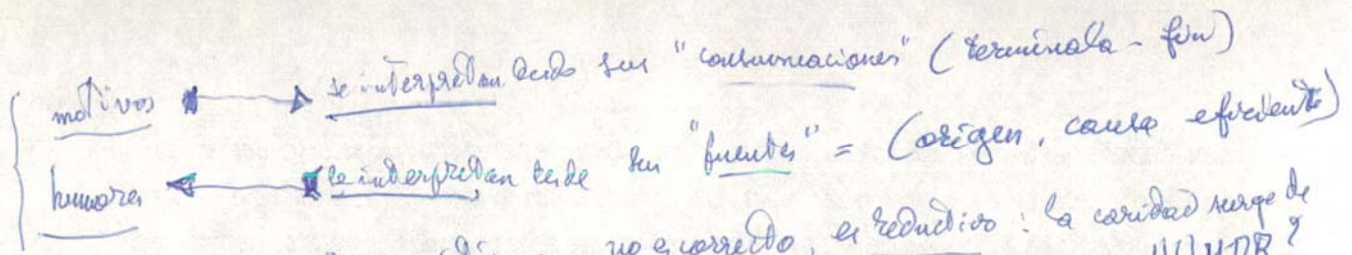 motivos ↔ se interpretan desde sus "consumaciones" (terminala - fin)
humores ↔ se interpretan desde sus "fuentes" = (origen, causa eficiente)
no es correcto, es reductivo: la caridad surge de
HUMOR?